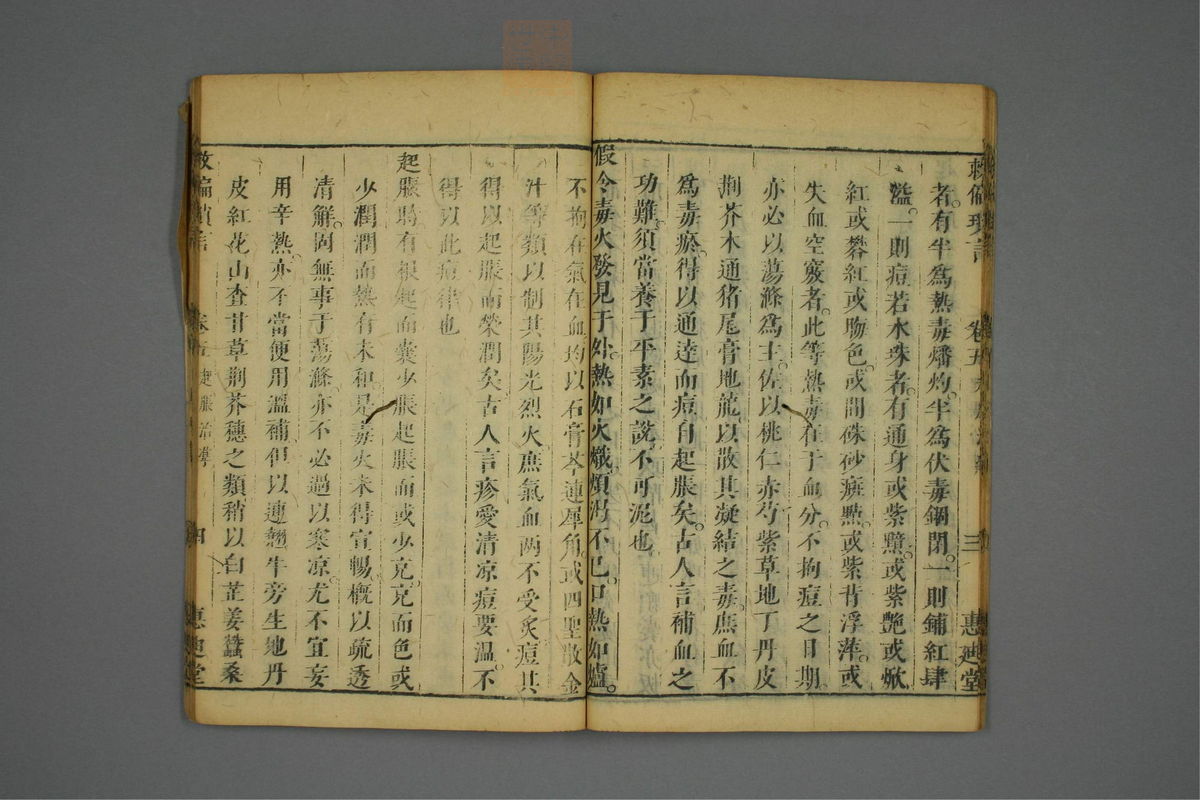 救偏瑣言 卷五 三 惠廸堂
者有半爲熱毒燔灼半爲伏毒錮閉一則鋪紅肆
溢一則痘若水珠者有通身或紫黯或紫艷或焮
紅或礬紅或脗色或間硃砂斑㸃或紫背浮萍或
失血空竅者此等熱毒在于血分不拘痘之日期
亦必以蕩滌爲主佐以桃仁赤芍紫草地丁丹皮
荆芥木通猪尾膏地龍以散其凝結之毒庶血不
爲毒瘀得以通達而痘自起脹矣古人言補血之
功難須當養于平素之說不可泥也
假令毒火發見于外熱如火熾煩渴不已口熱如爐
不拘在氣在血均以石膏芩連犀角或四聖散金
汁等類以制其陽光烈火庶氣血两不受炙痘其
得以起脹而榮潤矣古人言疹愛清凉痘要温不
得以此痘律也
起脹時有根起而囊少脹起脹而或少克克而色或
少潤潤而熱有未和是毒火未得宣暢槪以疏透
清解固無事于蕩滌亦不必過以寒凉尤不宜妄
用辛熱亦不當便用溫補但以連翹牛旁生地丹
皮紅花山查甘草荆芥穗之類稍以白芷姜蠶桑
救偏瑣言 卷五 起脹治擇 四 惠廸堂